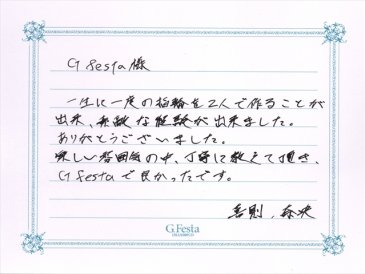 G festa 様
一生に一度の指輪を2人で作ることが
出来、素敵な経験が出来ました。
ありがとうございました。
楽しい雰囲気の中、丁寧に教えて頂き、
G festaで良かったです。
G.Festa